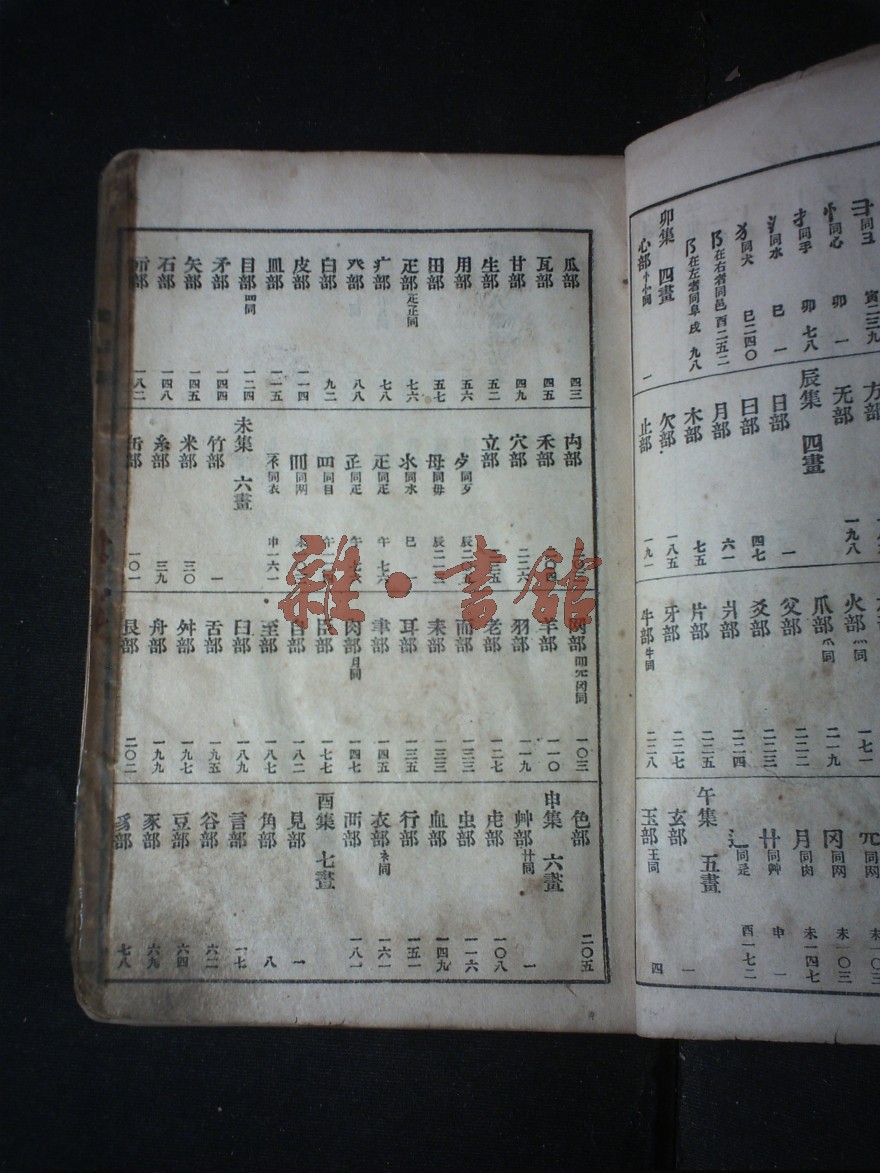 彐同彑 寅二三九
忄同心 卯一
扌同手 卯七八
氵同水 巳一
犭同犬 巳二四〇
阝在右者同邑 酉二五二
阝在左者同阜 戌九八
卯集 四畫
心部忄㣺同 一
方部
无部 一九八
辰集 四畫
日部 一
曰部 四七
月部 六一
木部 七五
欠部 一八五
止部 一九一
火部灬同 一七一
爪部爫同 二一九
父部 二二三
爻部 二二四
爿部 二二五
片部
牙部 二二七
牛部牜同 二二八
㓁同网 未一〇三
罓同网 未一〇三
月同肉 未一四七
艹同艸 申一
辶同辵 酉一七二
午集 五畫
玄部 一
玉部王同 四
瓜部 四三
瓦部 四五
甘部 四九
生部 五二
用部 五六
田部 五七
疋部 七六
疒部 七八
癶部 八八
白部 九二
皮部 一一四
皿部 一一五
目部罒同 一二四
矛部 一四四
矢部 一四五
石部 一四八
示部 一八二
禸部
禾部
穴部 二二六
立部
歺同歹
母同毋 辰二一二
氺同水 巳一
疋 午七六
罒同目
同网
衤同衣 申一六一
未集 六畫
竹部 一
米部 三〇
糸部 三九
缶部 一〇一
网部 一〇三
羊部 一一〇
羽部 一一九
老部 一二七
而部 一三三
耒部 一三三
耳部 一三五
聿部 一四五
肉部月同 一四七
臣部 一七七
自部 一八二
至部 一八七
臼部 一八九
舌部 一九五
舛部 一九七
舟部 一九九
艮部 二〇二
色部 二〇五
申集 六畫
艸部艹同 一
虍部 一〇八
虫部 一一六
血部 一四九
行部 一五一
衣部衤同 一六一
襾部 一八一
酉集 七畫
見部 一
角部 八
言部 一七
谷部 六二
豆部 六四
豕部 六九
豸部 七八
雜·書館